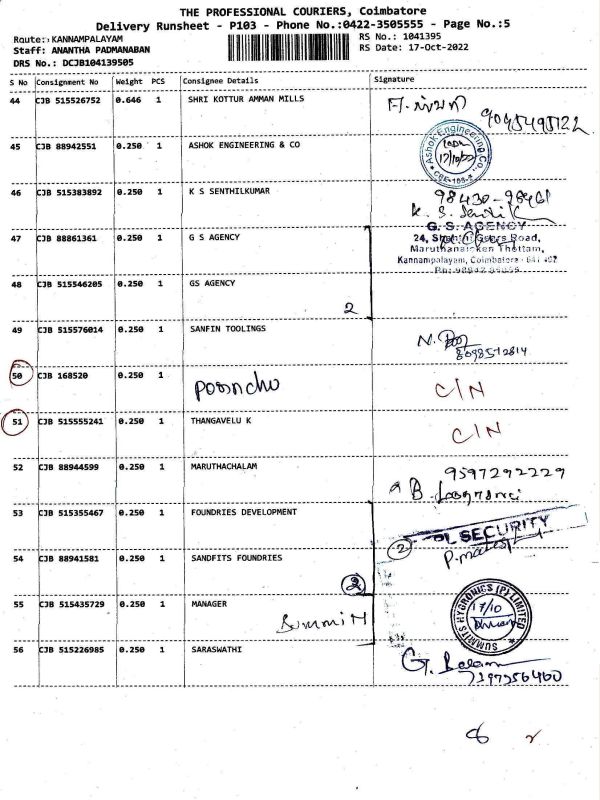 THE PROFESSIONAL COURIERS, Coimbatore
Delivery Runsheet - P103 - Phone No.:0422-3505555 - Page No.:5
Route: KANNAMPALAYAM
RS No.: 1041395
Staff: ANANTHA PADMANABAN
RS Date: 17-Oct-2022
DRS No.: DCJB104139505
S No Consignment No Weight PCS Consignee Details Signature
44 CJB 515526752 0.646 1 SHRI KOTTUR AMMAN MILLS
45 CJB 88942551 0.250 1 ASHOK ENGINEERING & CO
Ashok Engineering Co. 17/10/22
46 CJB 515383892 0.250 1 K S SENTHILKUMAR
98430-98461
K. S. Senthil K
47 CJB 88861361 0.250 1 G S AGENCY
G. S. AGENCY
24, Road,
Maruthanaicken Thottam,
Kannampalayam, Coimbatore - 641 402
48 CJB 515546205 0.250 1 GS AGENCY
2
49 CJB 515576014 0.250 1 SANFIN TOOLINGS
8098512814
50 CJB 168520 0.250 1 C/N
51 CJB 515555241 0.250 1 THANGAVELU K C/N
52 CJB 88944599 0.250 1 MARUTHACHALAM
9597292229
53 CJB 515355467 0.250 1 FOUNDRIES DEVELOPMENT
SECURITY
2
54 CJB 88941581 0.250 1 SANDFITS FOUNDRIES
2
55 CJB 515435729 0.250 1 MANAGER
SUMMITS HYGRONICS (P) LIMITED 17/10
56 CJB 515226985 0.250 1 SARASWATHI
7397356400
8